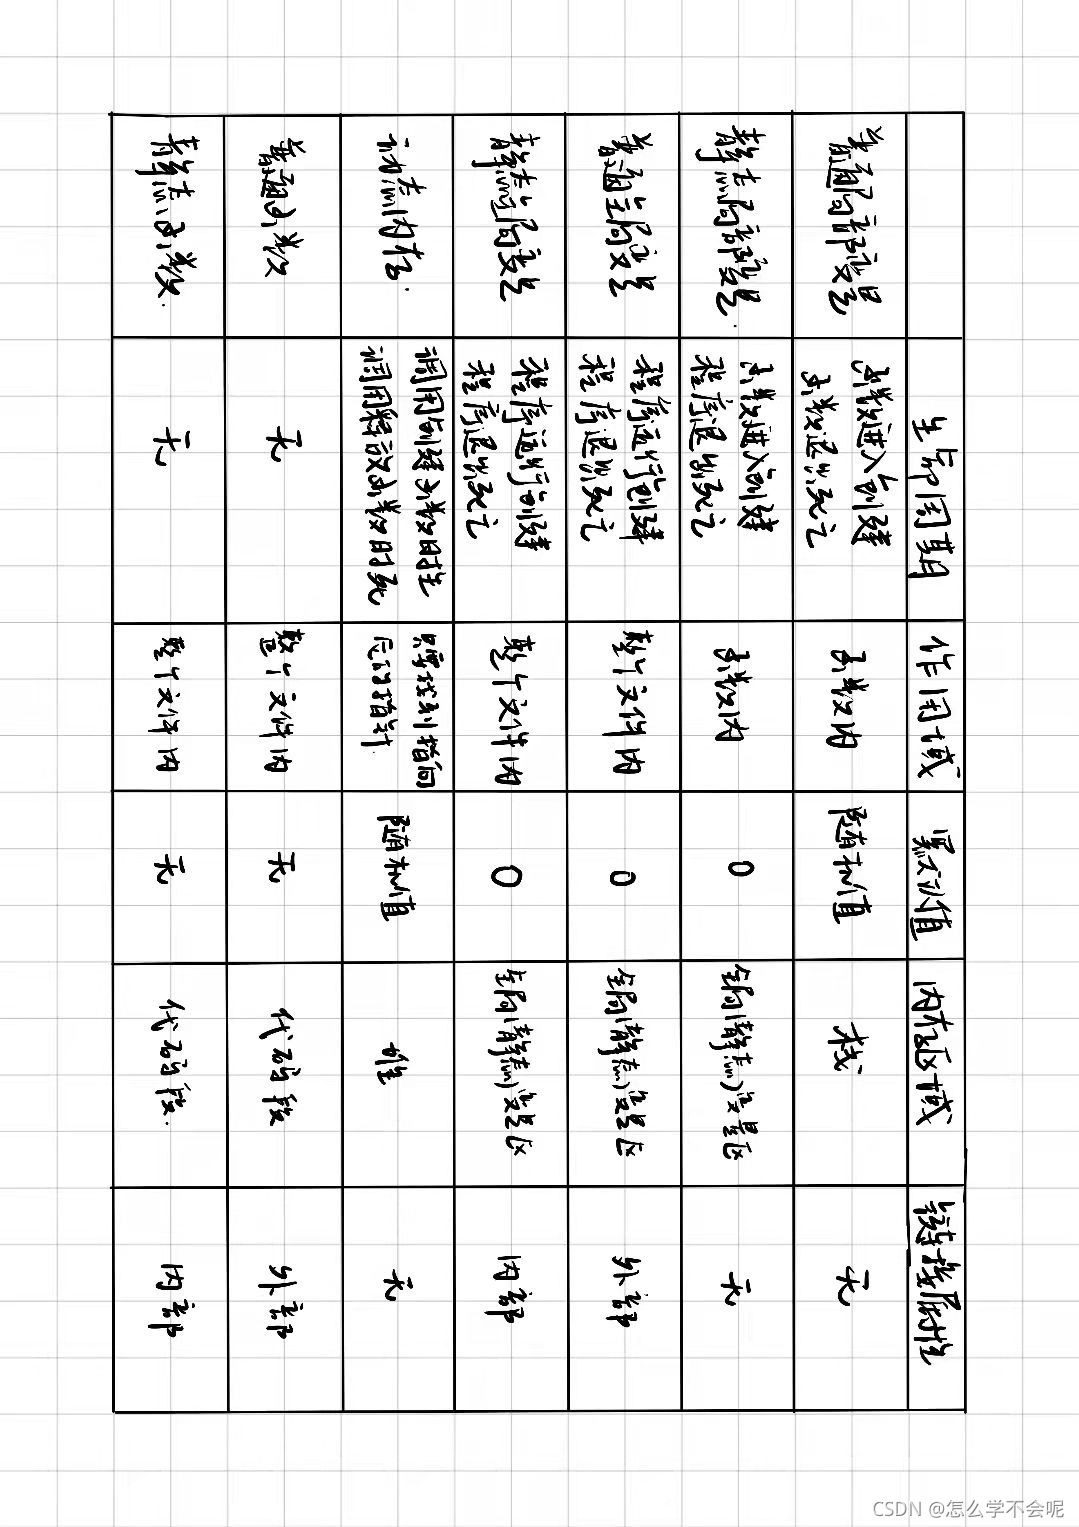 生命周期
作用域
默认值
内存区域
链接属性
普通局部变量
函数进入创建
函数退出死亡
函数内
随机值
栈
无
静态局部变量.
函数进入创建
程序退出死亡
函数内
0
全局(静态)变量区
无
普通全局变量
程序运行创建
程序退出死亡
整个文件内
0
全局(静态)变量区
外部
静态全局变量
程序运行创建
程序退出死亡
整个文件内
0
全局(静态)变量区
内部
动态内存.
调用创建函数时生
调用释放函数时死
只要找到指向
它的指针
随机值
堆
无
普通函数
无
整个文件内
无
代码段
外部
静态函数.
无
整个文件内
无
代码段.
内部
CSDN @怎么学不会呢